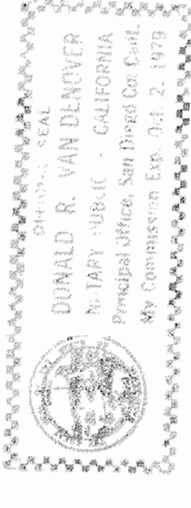 OFFICIAL SEAL
DONALD R. VAN DENOVER
NOTARY PUBLIC - CALIFORNIA
Principal Office, San Diego Co. Calif.
My Commission Exp. Oct. 2, 1979